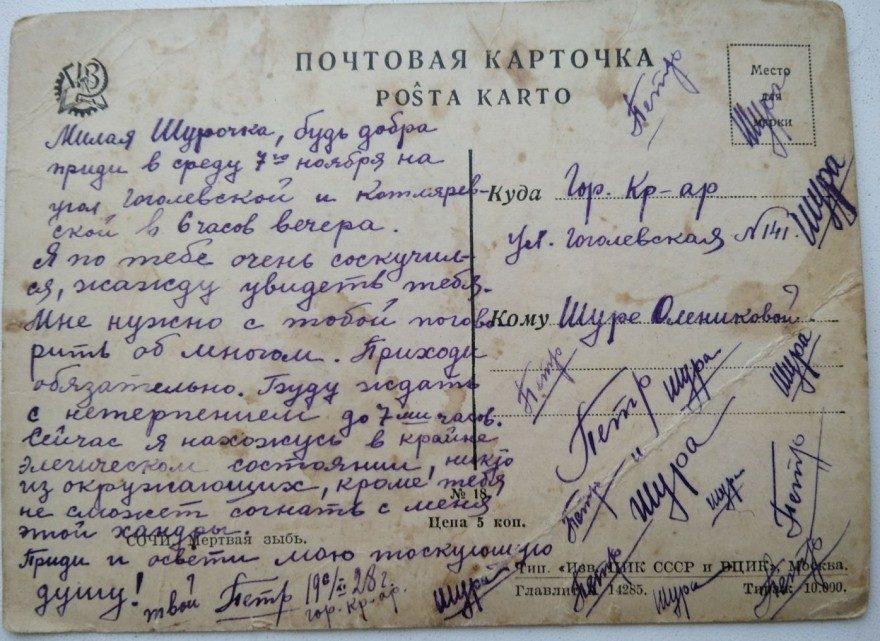 ПОЧТОВАЯ КАРТОЧКА
POŜTA KARTO
Место
для
марки
Милая Шурочка, будь добра
приди в среду 7го ноября на
угол Гоголевской и Котлярев-
ской в 6 часов вечера.
Я по тебе очень соскучил-
ся, жажду увидеть тебя.
Мне нужно с тобой погово
рить об многом. Приходи
обязательно. Буду ждать
с нетерпением до 7ми часов.
Сейчас я нахожусь в крайне
элегическом состоянии, никто
из окружающих, кроме тебя
не сможет согнать с меня
этой хандры.
Приди и освети мою тоскующую
душу!
твой Петр 28 г.
гор. Кр-ар.
Куда Гор. Кр-ар
ул. Гоголевская №141.
Кому Шуре Олениковой
Петр
Шура
Шура
Петр
Петр
Шура
Шура
Петр и Шура
Шура
Петр
Шура
Петр
Шура
Петр
№ 18.
Цена 5 коп.
СОЧИ. Мертвая зыбь.
Тип. «Изв. ЦИК СССР и ВЦИК», Москва.
Главлит А 14285. Тираж 10.000.